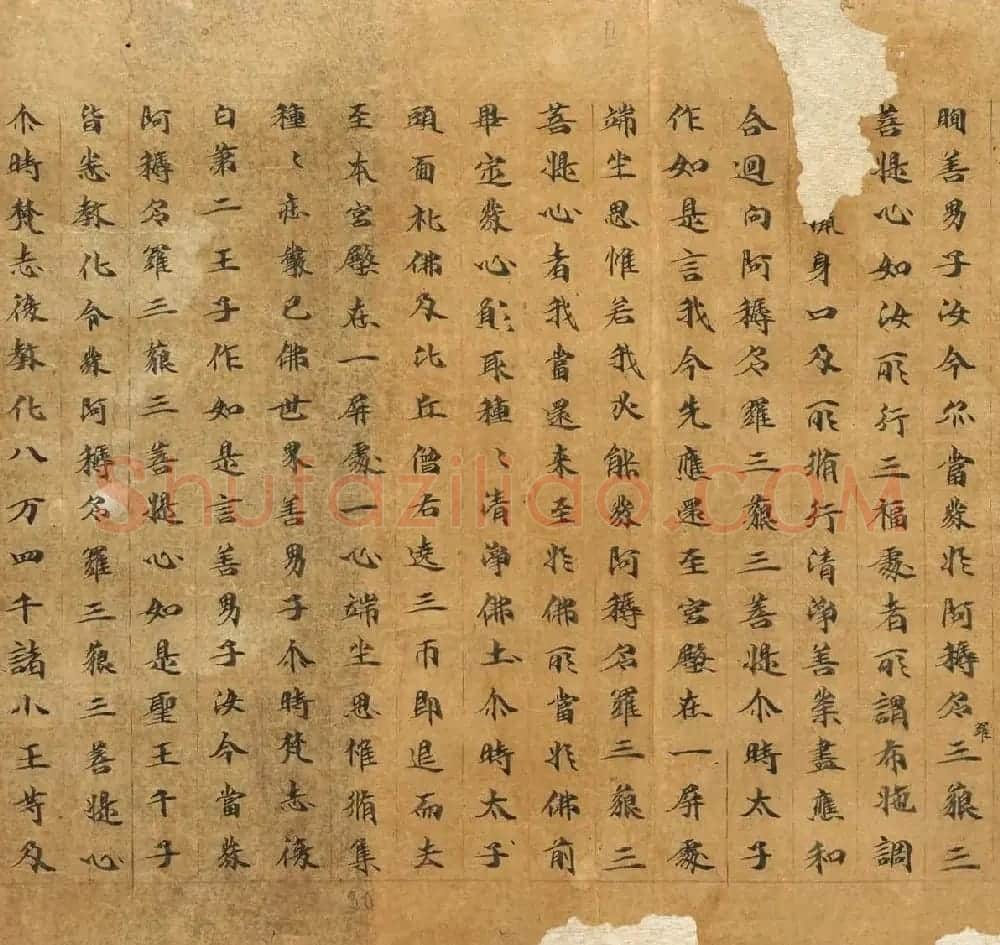 眴善男子汝今亦當發於阿耨多羅三藐三
菩提心如汝所行三福處者所謂布施調
身口及所脩行清淨善業盡應和
合迴向阿耨多羅三藐三菩提尒時太子
作如是言我今先應還至宮殿在一屏處
端坐思惟若我必能發阿耨多羅三藐三
菩提心者我當還來至於佛所當於佛前
畢定發心願取種〻清淨佛土尒時太子
頭面礼佛及比丘僧右遶三帀即退而去
至本宮殿在一屏處一心端坐思惟脩集
種〻莊嚴已佛世界善男子尒時梵志復
白第二王子作如是言善男子汝今當發
阿耨多羅三藐三菩提心如是聖王千子
皆悉教化令發阿耨多羅三藐三菩提心
尒時梵志復教化八万四千諸小王等及
Shufaziliao.COM